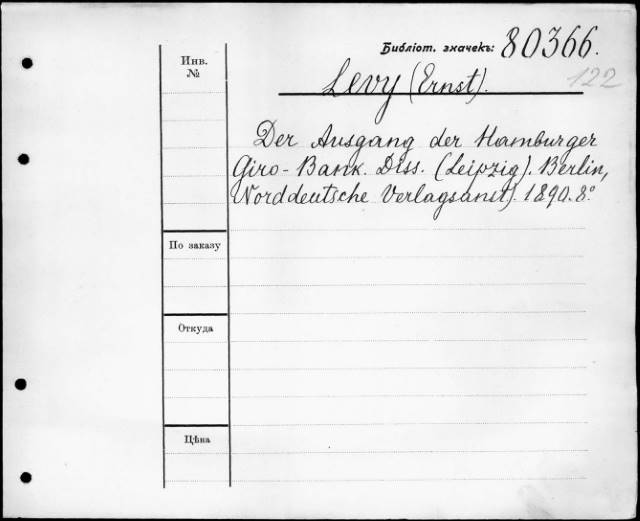 Библіот. значекъ: 80366.
Инв.
№
Levy (Ernst).
122
Der Ausgang der Hamburger
Giro-Bank. Diss. (Leipzig). Berlin,
Norddeutsche Verlagsanst). 1890. 8°
По заказу
Откуда
Цѣна